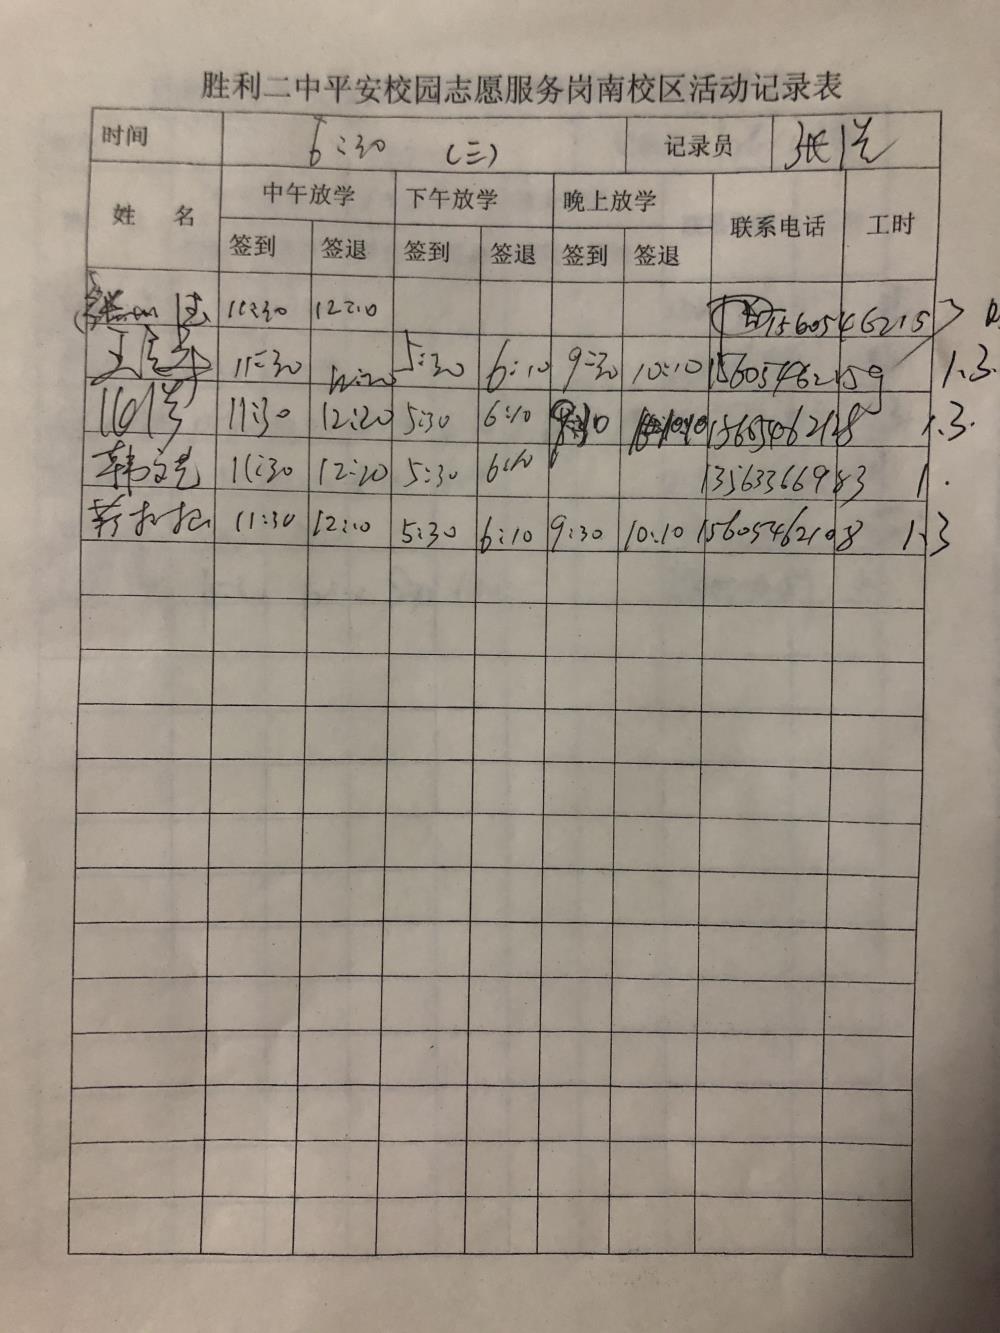 胜利二中平安校园志愿服务岗南校区活动记录表
时间 6:30 (三) 记录员 张
姓 名 中午放学 下午放学 晚上放学 联系电话 工时
签到 签退 签到 签退 签到 签退
11:30 12:10
11:30 12:20 5:30 6:10 9:30 10:10 15605462159 1.3.
11:30 12:20 5:30 6:10 1.3.
韩文艺 11:30 12:20 5:30 6:10 13563366983 1.
11:30 12:10 5:30 6:10 9:30 10:10 15605462108 1.3